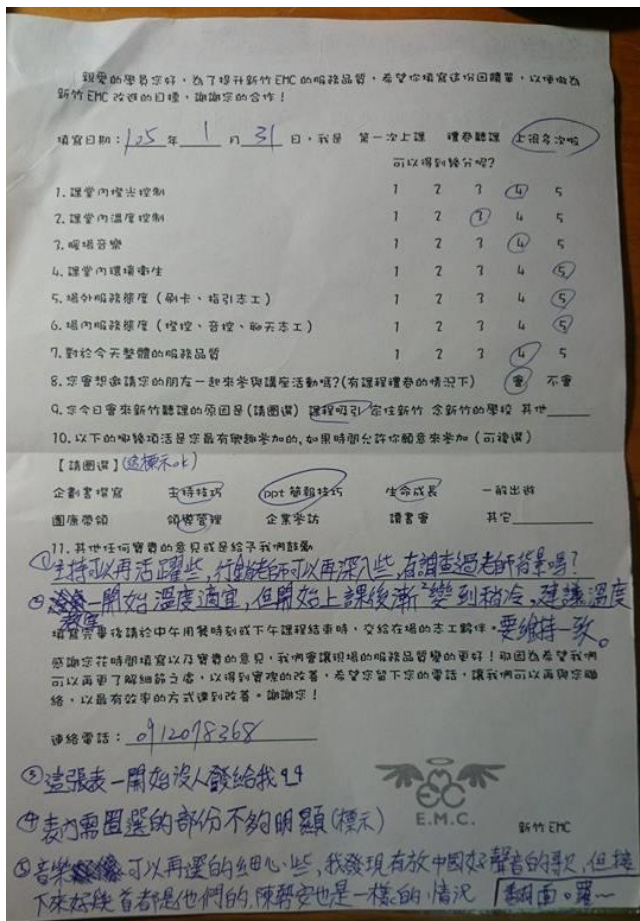 親愛的學員您好，為了提升新竹EMC的服務品質，希望你填寫這份回饋單，以便做為
新竹EMC改進的目標，謝謝您的合作！
填寫日期：105年 1 月 31 日，我是 第一次上課 禮卷聽課 上很多次啦
可以得到幾分呢？
1. 課堂內燈光控制 1 2 3 4 5
2. 課堂內溫度控制 1 2 3 4 5
3. 暖場音樂 1 2 3 4 5
4. 課堂內環境衛生 1 2 3 4 5
5. 場外服務態度（刷卡、指引志工） 1 2 3 4 5
6. 場內服務態度（燈控、音控、聊天志工） 1 2 3 4 5
7. 對於今天整體的服務品質 1 2 3 4 5
8. 您會想邀請您的朋友一起來參與講座活動嗎？(有課程禮卷的情況下) 會 不會
9. 您今日會來新竹聽課的原因是(請圈選) 課程吸引 定住新竹 念新竹的學校 其他
10. 以下的哪幾項活是您最有興趣參加的,如果時間允許你願意來參加（可複選）
【請圈選】(這標示ok)
企劃書撰寫 主持技巧 ppt 簡報技巧 生命成長 一般出遊
團康帶領 領導管理 企業參訪 讀書會 其它
11. 其他任何寶貴的意見或是給予我們鼓勵
①主持可以再活躍些，行銷老師可以再深入些，有調查過老師背景嗎？
②教室一開始溫度適宜，但開始上課後漸漸變到稍冷，建議溫度
要維持一致。
填寫完畢後請於中午用餐時刻或下午課程結束時，交給在場的志工夥伴。
感謝您花時間填寫以及寶貴的意見，我們會讓現場的服務品質變的更好！那因為希望我們
可以再更了解細節之處，以得到實現的改善，希望您留下您的電話，讓我們可以再與您聯
絡，以最有效率的方式達到改善。謝謝您！
連絡電話：0912078368
③這張表一開始沒人發給我QQ
④表內需圈選的部份不夠明顯(標示)
E.M.C.
新竹 EMC
⑤音樂可以再選的細心些，我發現有放中國好聲音的歌，但接
下來好幾首都是他們的，陳勢安也是一樣的情況 翻面。囉~